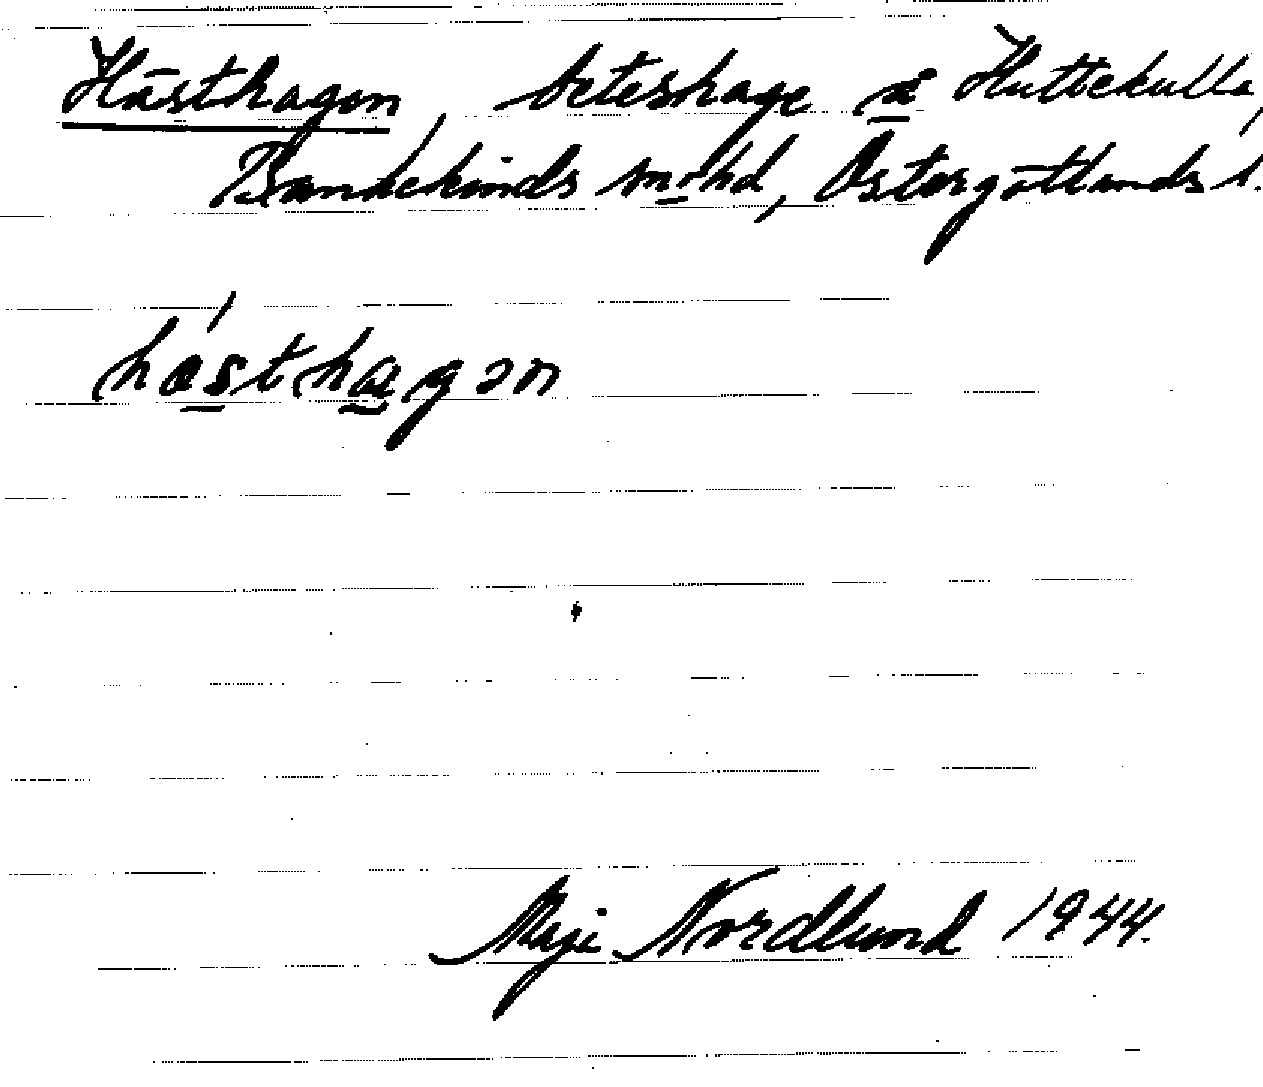 Hästhagen, beteshage å Huttekulla,
Bankekinds sn o hd, Östergötlands l.
hästhagən
Maje Nordlund 1944.